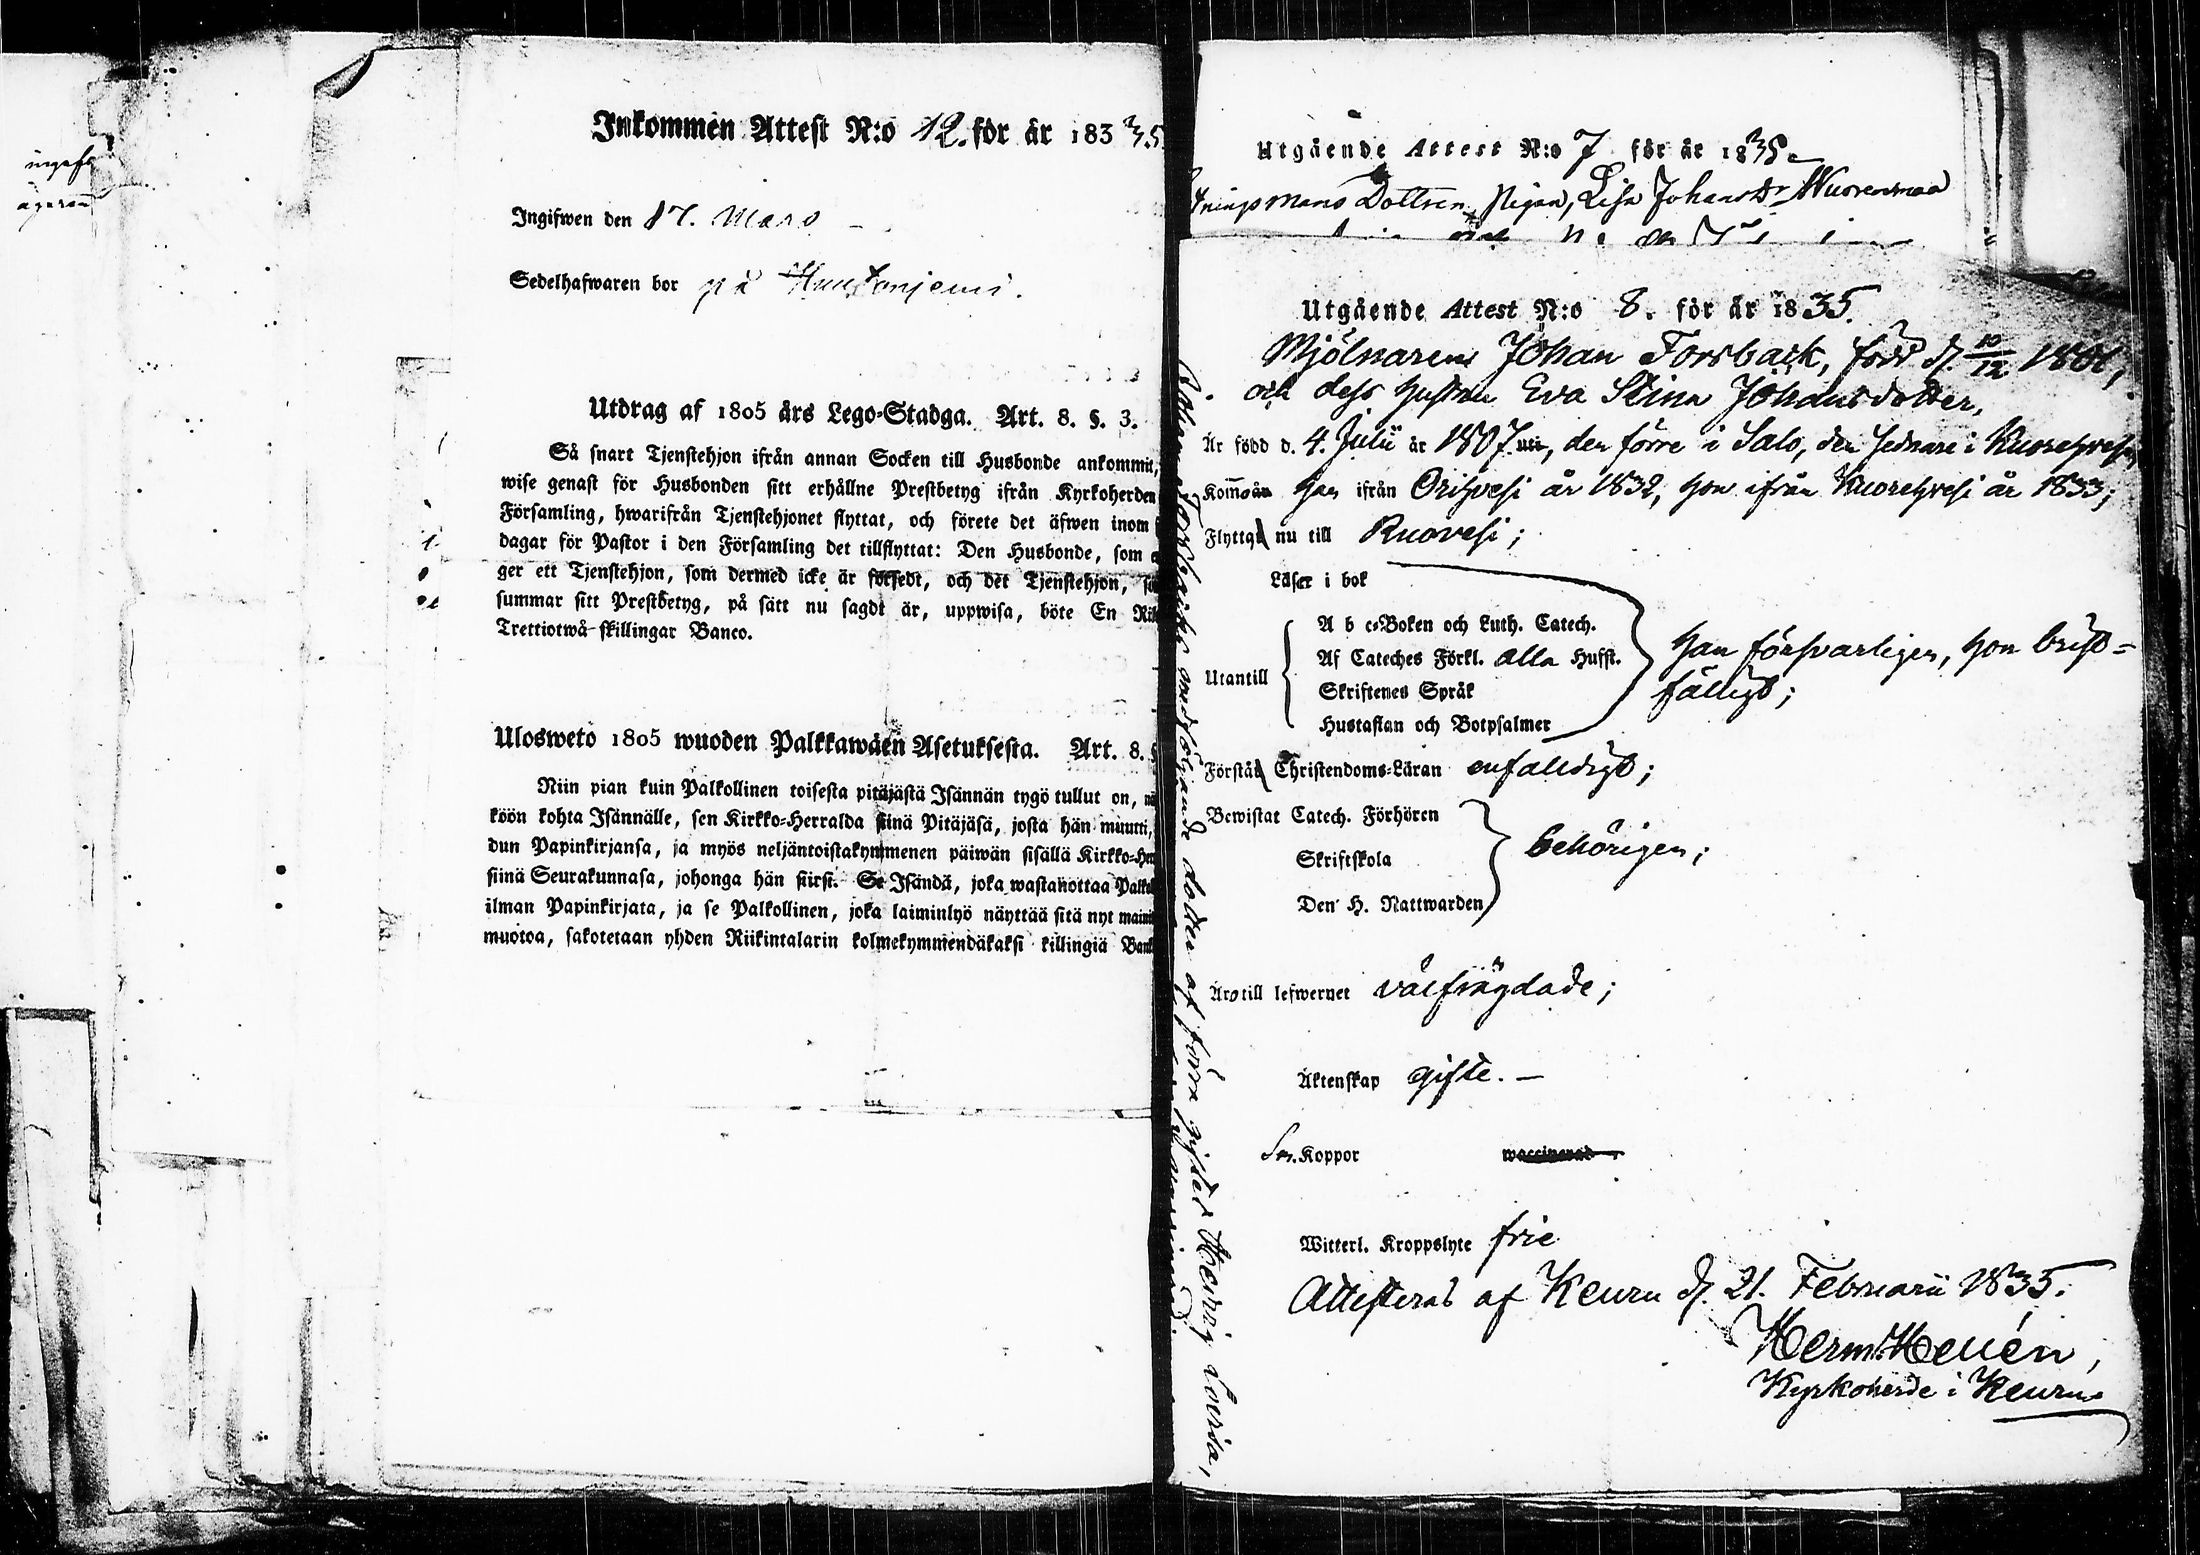 Inkommen Attest N:o 12. för år 1835.
Ingifwen den 17. Mars
Sedelhafwaren bor på
Utdrag af 1805 års Lego-Stadga. Art. 8. §. 3.
Så snart Tjenstehjon ifrån annan Socken till Husbonde ankommit,
wise genast för Husbonden sitt erhållne Prestbetyg ifrån Kyrkoherden
Församling, hwarifrån Tjenstehjonet flyttat, och förete det äfwen inom
dagar för Pastor i den Församling det tillflyttat: Den Husbonde, som
ger ett Tjenstehjon, som dermed icke är försedt, och det Tjenstehjon,
summar sitt Prestbetyg, på sätt nu sagdt är, uppwisa, böte En
Trettiotwå skillingar Banco.
Ulosweto 1805 wuoden Palkkawäen Asetuksesta. Art. 8.
Niin pian kuin Palkollinen toisesta pitäjästä Isännän tygö tullut on,
köön kohta Isännälle, sen Kirkko-Herralda siinä Pitäjäsä, josta hän muutti,
dun Papinkirjansa, ja myös neljäntoistakymmenen päiwän sisällä Kirkko-
siinä Seurakunnasa, johonga hän siirsi. Se Isändä, joka wastanottaa
ilman Papinkirjata, ja se Palkollinen, joka laiminlyö näyttää sitä nyt
muotoa, sakotetaan yhden Riikintalarin kolmekymmendäkaksi killingiä
Utgående Attest N:o 7 för år 1835.
Dottren, Pigan, Lisa Johansdr Wuorenmaa
Utgående Attest N:o 8. för år 1835.
Mjölnaren Johan Forsback, född d. 10/12 1801,
och dess hustru Eva Stina Johansdotter,
Är född d. 4. Julii år 1807, den förre i Salo, den sednare i Kuorehvesi,
Kom̃o han ifrån Orihvesi år 1832, hon ifrån Kuorehvesi år 1833;
Flytta nu till Ruovesi;
Läser i bok
A b c-Boken och Luth. Catech.
Utantill Af Cateches Förkl. alla Hufst.
han försvarligen, hon brist-
Skriftenes Språk fälligt;
Hustaflan och Botpsalmer
Förstå Christendoms-Läran enfalldigt;
Bewistat Catech. Förhören
Skriftskola behörigen;
Den H. Nattwarden
Äro till lefwernet välfrägdade;
Äktenskap gifte. —
Koppor
Witterl. Kroppslyte frie
Attesteras af Keuru d. 21. Februarii 1835.
Herm. Hellén,
Kyrkoherde i Keuru
medföljande dotter af förra giftet Hedvig Lovisa,